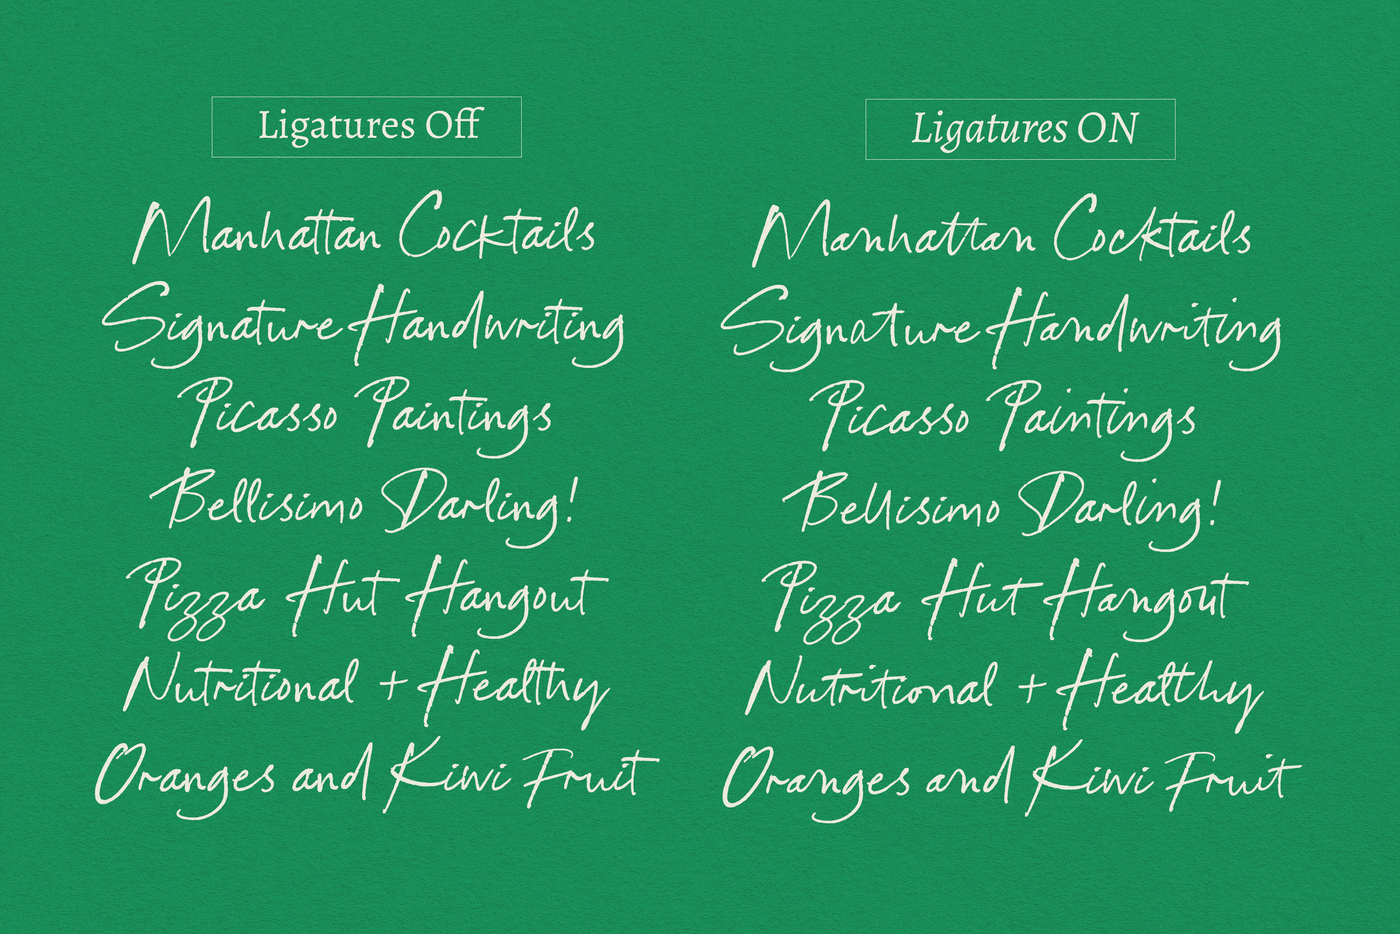 Ligatures Off
Manhattan Cocktails
Signature Handwriting
Picasso Paintings
Bellisimo Darling!
Pizza Hut Hangout
Nutritional + Healthy
Oranges and Kiwi Fruit
Ligatures ON
Manhattan Cocktails
Signature Handwriting
Picasso Paintings
Bellisimo Darling!
Pizza Hut Hangout
Nutritional + Healthy
Oranges and Kiwi Fruit